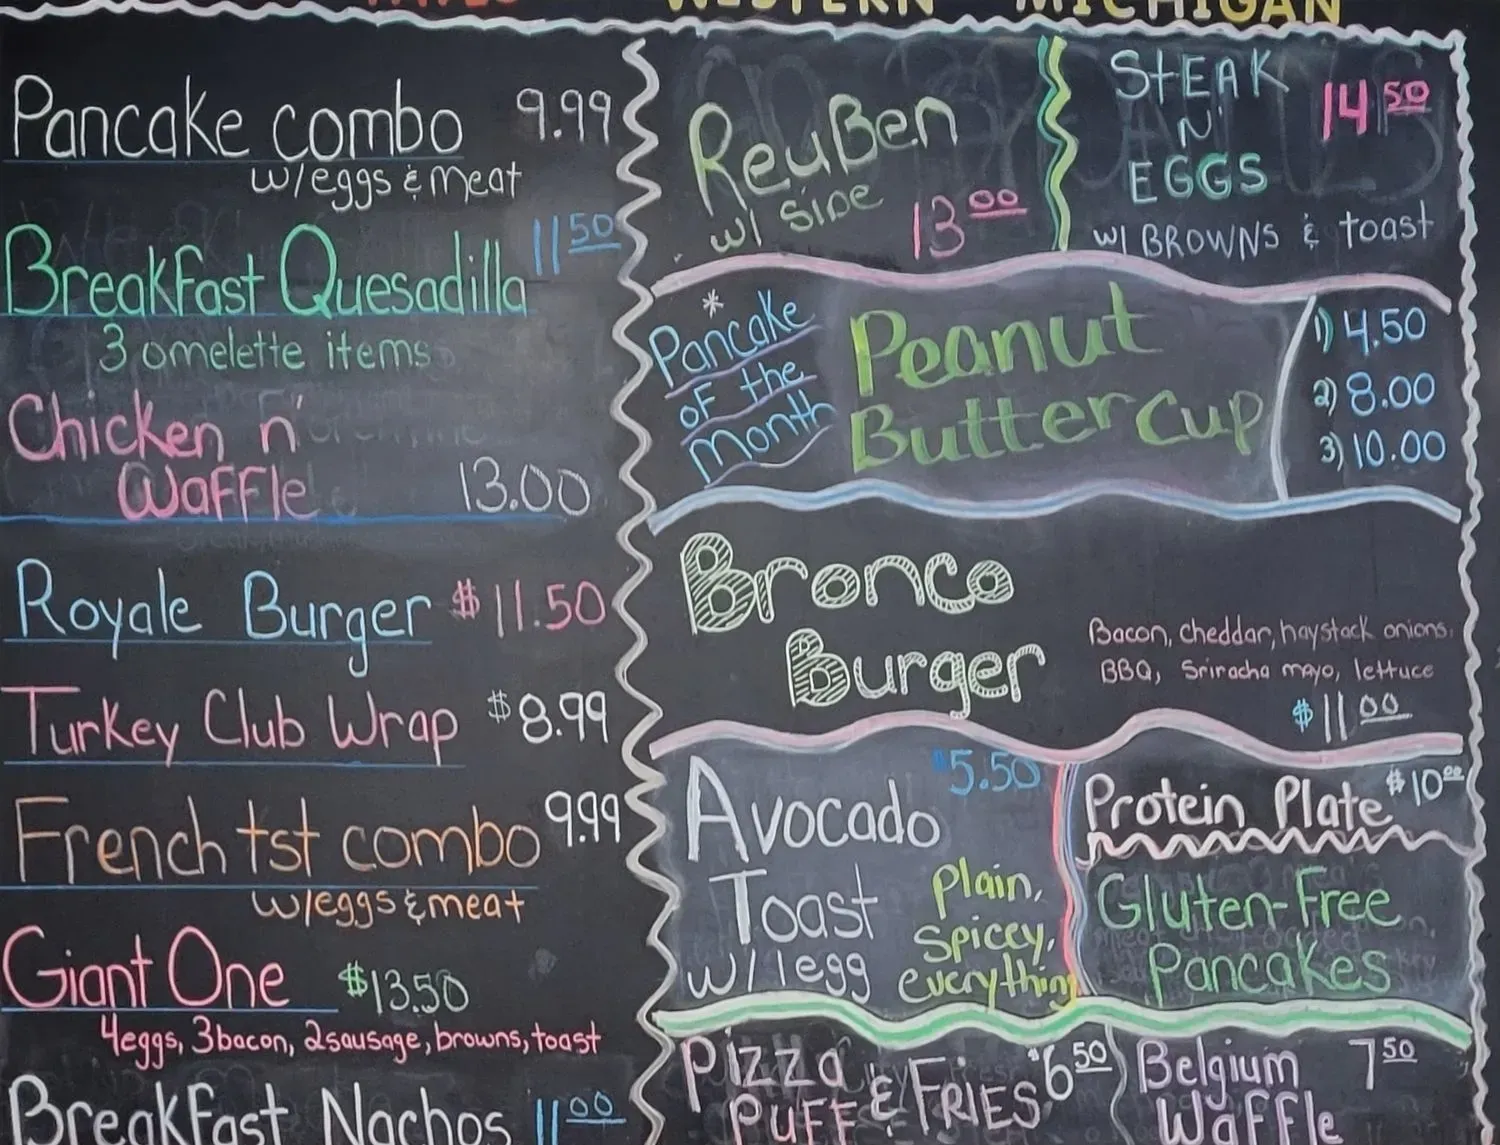 WESTERN MICHIGAN
Pancake combo 9.99
w/eggs & meat
Breakfast Quesadilla 11 50
3 omelette items
Chicken n'
Waffle 13.00
Royale Burger $11.50
Turkey Club Wrap $8.99
French tst combo 9.99
w/eggs & meat
Giant One $13.50
4eggs, 3bacon, 2sausage, browns, toast
Breakfast Nachos 11 00
ReuBen
w/ Side 13 00
StEAK
N'
EGGS
14 50
w/ BROWNS & toast
*
Pancake
of the
month
Peanut
Butter Cup
1) 4.50
2) 8.00
3) 10.00
Bronco
Burger
Bacon, cheddar, haystack onions,
BBQ, Sriracha mayo, lettuce
$11 00
Avocado $5.50
Toast
w/ 1egg
Plain,
Spicey,
everything
Protein Plate $10 00
Gluten-Free
Pancakes
Pizza
Puff & Fries $6 50
Belgium 7 50
Waffle